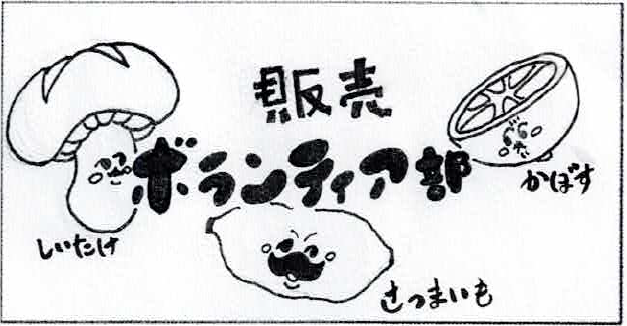 販売
ボランティア部
かぼす
しいたけ
さつまいも